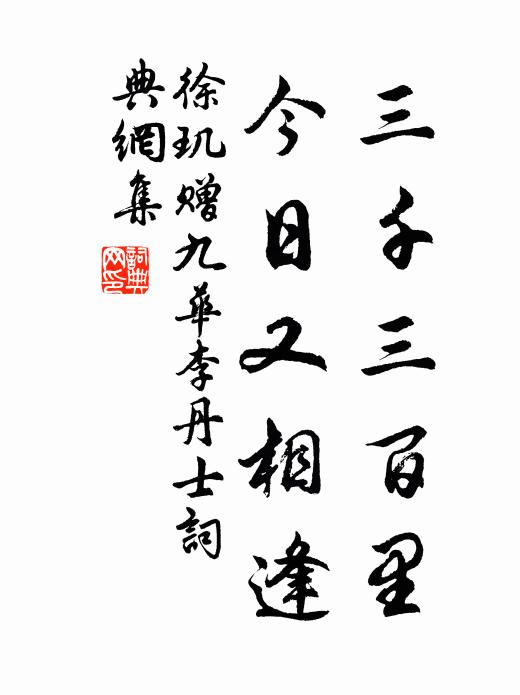 三千三百里
今日又相逢
徐玑赠九華李丹士詞
典網集
詞典
网印